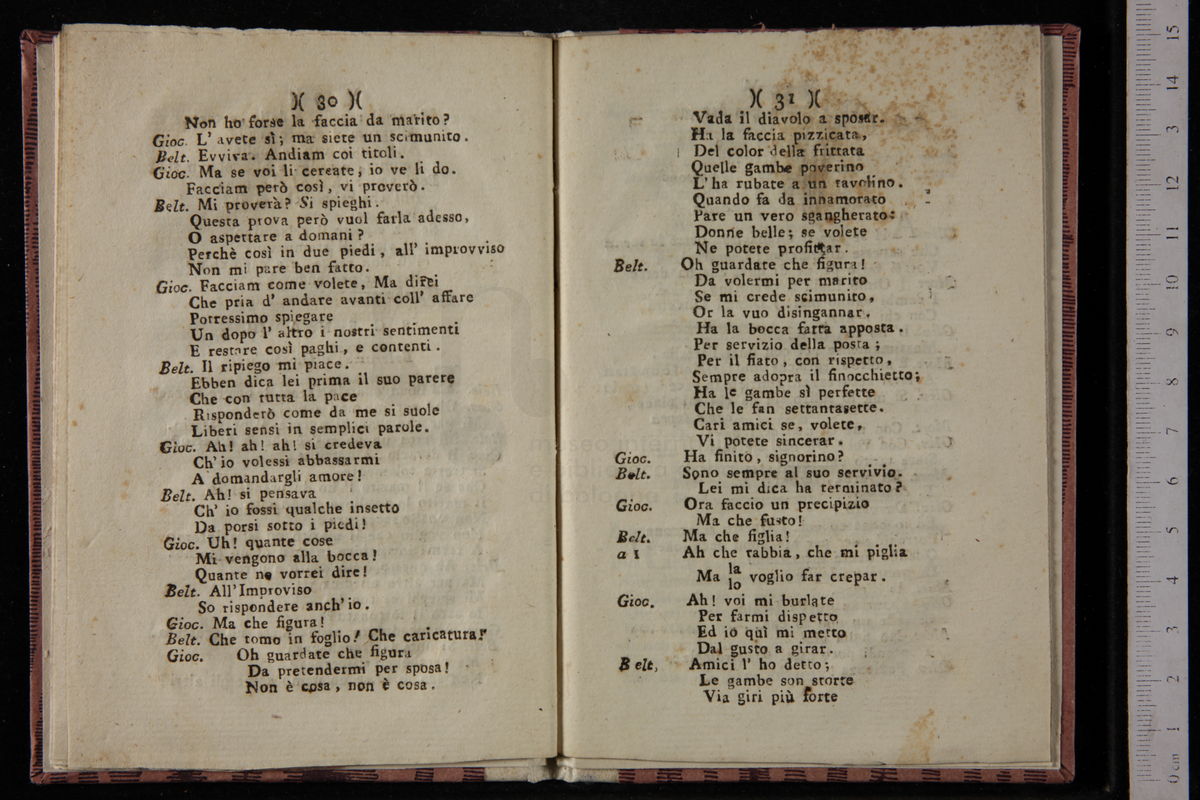 )( 30 )(
Non ho forse la faccia da marito?
Gioc. L' avete sì; ma siete un scimunito.
Belt. Evviva. Andiam coi titoli.
Gioc. Ma se voi li cercate, io ve li do.
Facciam però così, vi proverò.
Belt. Mi proverà? Si spieghi.
Questa prova però vuol farla adesso,
O aspettare a domani?
Perchè così in due piedi, all' improvviso
Non mi pare ben fatto.
Gioc. Facciam come volete, Ma direi
Che pria d' andare avanti coll' affare
Potressimo spiegare
Un dopo l' altro i nostri sentimenti
E restare così paghi, e contenti.
Belt. Il ripiego mi piace.
Ebben dica lei prima il suo parere
Che con tutta la pace
Risponderò come da me si suole
Liberi sensi in semplici parole.
Gioc. Ah! ah! ah! si credeva
Ch' io volessi abbassarmi
A domandargli amore!
Belt. Ah! si pensava
Ch' io fossi qualche insetto
Da porsi sotto i piedi!
Gioc. Uh! quante cose
Mi vengono alla bocca!
Quante ne vorrei dire!
Belt. All'Improviso
So rispondere anch' io.
Gioc. Ma che figura!
Belt. Che tomo in foglio! Che caricatura!
Gioc. Oh guardate che figura
Da pretendermi per sposa!
Non è cosa, non è cosa.
)( 31 )(
Vada il diavolo a sposar.
Ha la faccia pizzicata,
Del color della frittata
Quelle gambe poverino
L' ha rubate a un tavolino.
Quando fa da innamorato
Pare un vero sgangherato:
Donne belle; se volete
Ne potete profittar.
Belt. Oh guardate che figura!
Da volermi per marito
Se mi crede scimunito,
Or la vuo disingannar.
Ha la bocca fatta apposta.
Per servizio della posta;
Per il fiato, con rispetto,
Sempre adopra il finocchietto;
Ha le gambe sì perfette
Che le fan settantasette.
Cari amici se, volete,
Vi potete sincerar.
Gioc. Ha finito, signorino?
Belt. Sono sempre al suo servivio.
Lei mi dica ha terminato?
Gioc. Ora faccio un precipizio
Ma che fusto!
Belt. Ma che figlia!
a 2 Ah che rabbia, che mi piglia
Ma la lo voglio far crepar.
Gioc. Ah! voi mi burlate
Per farmi dispetto
Ed io quì mi metto
Dal gusto a girar.
Belt, Amici l' ho detto;
Le gambe son storte
Via giri più forte